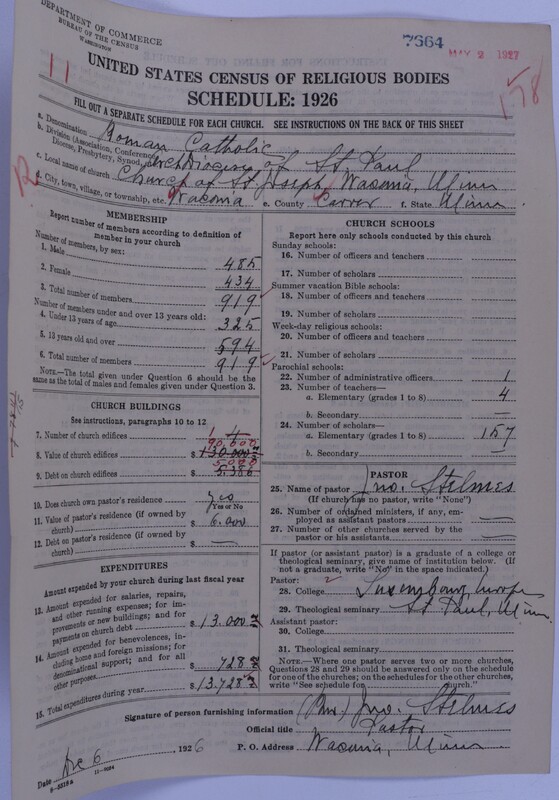 DEPARTMENT OF COMMERCE
BUREAU OF THE CENSUS
WASHINGTON
7664
MAY 2 1927
11
178
UNITED STATES CENSUS OF RELIGIOUS BODIES
SCHEDULE: 1926
FILL OUT A SEPARATE SCHEDULE FOR EACH CHURCH. SEE INSTRUCTIONS ON THE BACK OF THIS SHEET
a. Denomination Roman Catholic
b. Division (Association, Conference, Diocese, Presbytery, Synod, Archdiocese of St Paul
c. Local name of church Church of St Joseph, Waconia, Minn
d. City, town, village, or township, etc. Waconia e. County Carver f. State Minn
MEMBERSHIP
Report number of members according to definition of member in your church
Number of members, by sex:
1. Male 485
2. Female 434
3. Total number of members 919
Number of members under and over 13 years old:
4. Under 13 years of age 325
5. 13 years old and over 594
6. Total number of members 919
NOTE.—The total given under Question 6 should be the same as the total of males and females given under Question 3.
CHURCH BUILDINGS
See instructions, paragraphs 10 to 12
7. Number of church edifices 1
90,000
8. Value of church edifices $130.000
5000
9. Debt on church edifices $5.386
10. Does church own pastor's residence? Yes
Yes or No
11. Value of pastor's residence (if owned by church) $6.000
12. Debt on pastor's residence (if owned by church) $ —
EXPENDITURES
Amount expended by your church during last fiscal year
13. Amount expended for salaries, repairs, and other running expenses; for improvements or new buildings; and for payments on church debt $13.000
14. Amount expended for benevolences, including home and foreign missions; for denominational support; and for all other purposes $728
15. Total expenditures during year $13.728
CHURCH SCHOOLS
Report here only schools conducted by this church
Sunday schools:
16. Number of officers and teachers
17. Number of scholars
Summer vacation Bible schools:
18. Number of officers and teachers
19. Number of scholars
Week-day religious schools:
20. Number of officers and teachers
21. Number of scholars
Parochial schools:
22. Number of administrative officers 1
23. Number of teachers—
a. Elementary (grades 1 to 8) 4
b. Secondary —
24. Number of scholars—
a. Elementary (grades 1 to 8) 157
b. Secondary —
PASTOR
25. Name of pastor Jno. Stelmes
(If church has no pastor, write "None")
26. Number of ordained ministers, if any, employed as assistant pastors —
27. Number of other churches served by the pastor or his assistants —
If pastor (or assistant pastor) is a graduate of a college or theological seminary, give name of institution below. (If not a graduate, write "No" in the space indicated.)
Pastor:
28. College Luxembourg, Europe
29. Theological seminary St Paul, Minn.
Assistant pastor:
30. College
31. Theological seminary
NOTE.—Where one pastor serves two or more churches, Questions 28 and 29 should be answered only on the schedule for one of the churches; on the schedules for the other churches, write "See schedule for church."
Signature of person furnishing information Jno. Stelmes
Official title Pastor
Date Dec 6, 1926 P. O. Address Waconia, Minn